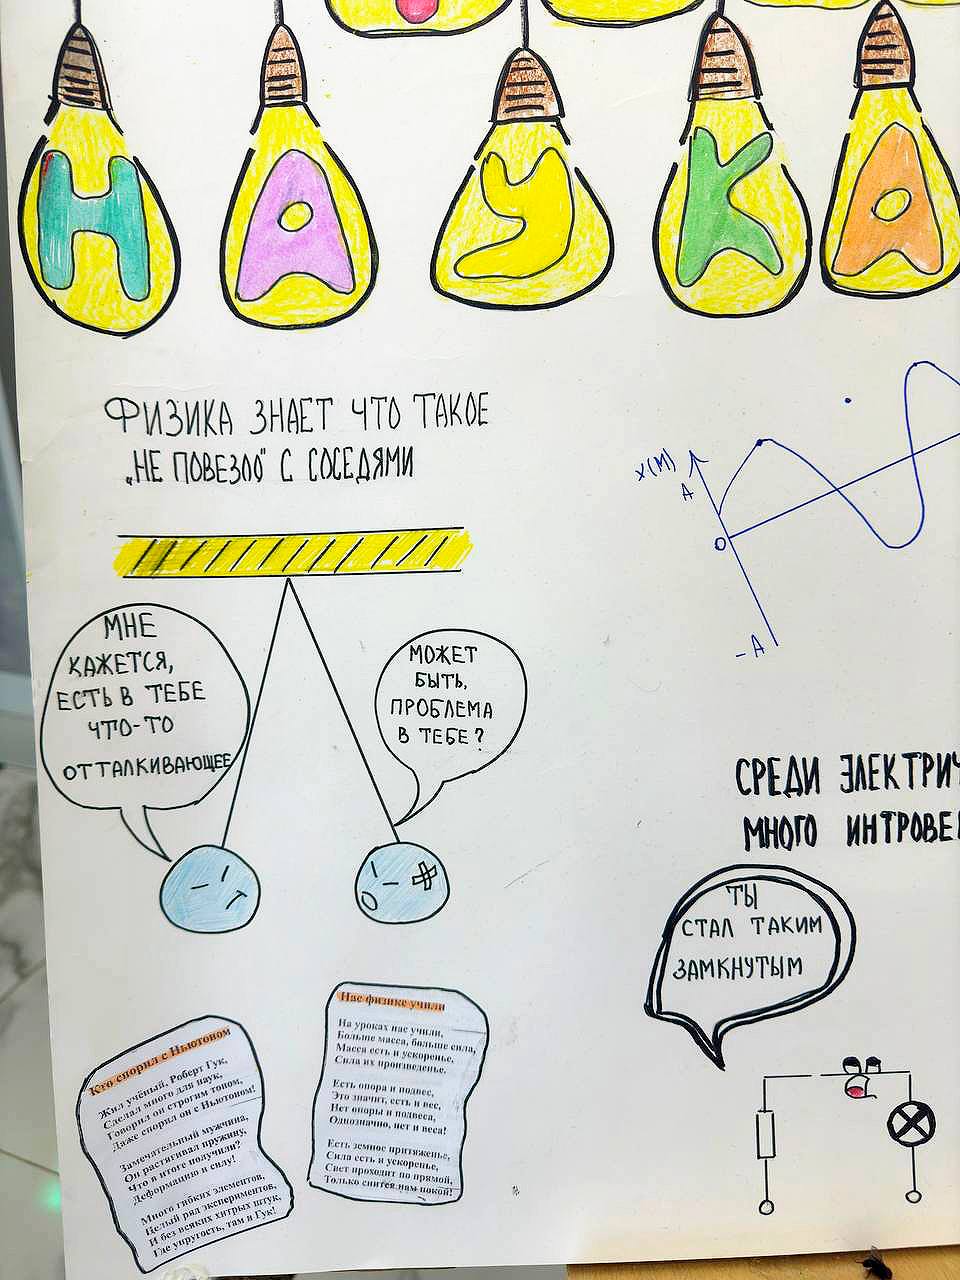 НАУКА
ФИЗИКА ЗНАЕТ ЧТО ТАКОЕ
„НЕ ПОВЕЗЛО" С СОСЕДЯМИ
X(М)
A
O
-A
МНЕ
КАЖЕТСЯ,
ЕСТЬ В ТЕБЕ
ЧТО-ТО
ОТТАЛКИВАЮЩЕЕ
МОЖЕТ
БЫТЬ,
ПРОБЛЕМА
В ТЕБЕ?
СРЕДИ ЭЛЕКТРИЧ
МНОГО ИНТРОВЕ
ТЫ
СТАЛ ТАКИМ
ЗАМКНУТЫМ
Кто спорил с Ньютоном
Жил учёный, Роберт Гук,
Сделал много для наук,
Говорил он строгим тоном,
Даже спорил он с Ньютоном!
Замечательный мужчина,
Он растягивал пружину,
Что в итоге получили?
Деформацию и силу!
Много гибких элементов,
Целый ряд экспериментов,
И без всяких хитрых штук,
Где упругость, там и Гук!
Нас физике учили
На уроках нас учили,
Больше масса, больше сила,
Масса есть и ускоренье,
Сила их произведенье.
Есть опора и подвес,
Это значит, есть и вес,
Нет опоры и подвеса,
Однозначно, нет и веса!
Есть земное притяженье,
Сила есть и ускоренье,
Свет проходит по прямой,
Только снится нам покой!